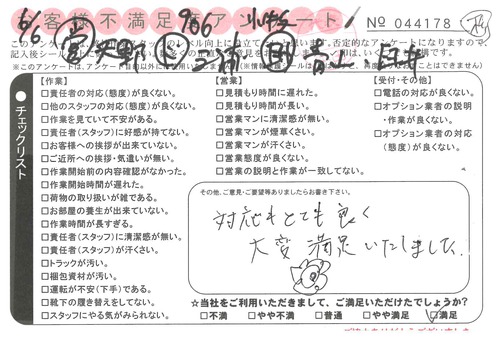 お客様不満足度アンケート
No 044178
6/6
【作業】
□責任者の対応(態度)が良くない。
□他のスタッフの対応(態度)が良くない。
□作業を見ていて不安がある。
□責任者(スタッフ)に好感が持てない。
□お客様への挨拶が出来ていない。
□ご近所への挨拶・気遣いが無い。
□作業開始前の内容確認がなかった。
□作業開始時間が遅れた。
□荷物の取り扱いが雑である。
□お部屋の養生が出来ていない。
□作業時間が長すぎる。
□責任者(スタッフ)に清潔感が無い。
□責任者(スタッフ)が汗くさい。
□トラックが汚い。
□梱包資材が汚い。
□運転が不安(下手)である。
□靴下の履き替えをしてない。
□スタッフにやる気がみられない。
【営業】
□見積もり時間に遅れた。
□見積もり時間が長い。
□営業マンに清潔感が無い。
□営業マンが煙草くさい。
□営業マンが汗くさい。
□営業態度が良くない。
□営業の説明と作業が一致してない。
【受付・その他】
□電話の対応が良くない。
□オプション業者の説明
・作業が良くない。
□オプション業者の対応
(態度)が良くない。
●チェックリスト
その他、ご意見・ご要望等ありましたらお書き下さい。
対応もとても良く
大変満足いたしました。
☆当社をご利用いただきまして、ご満足いただけたでしょうか?
□不満 □やや不満 □普通 □やや満足 □満足